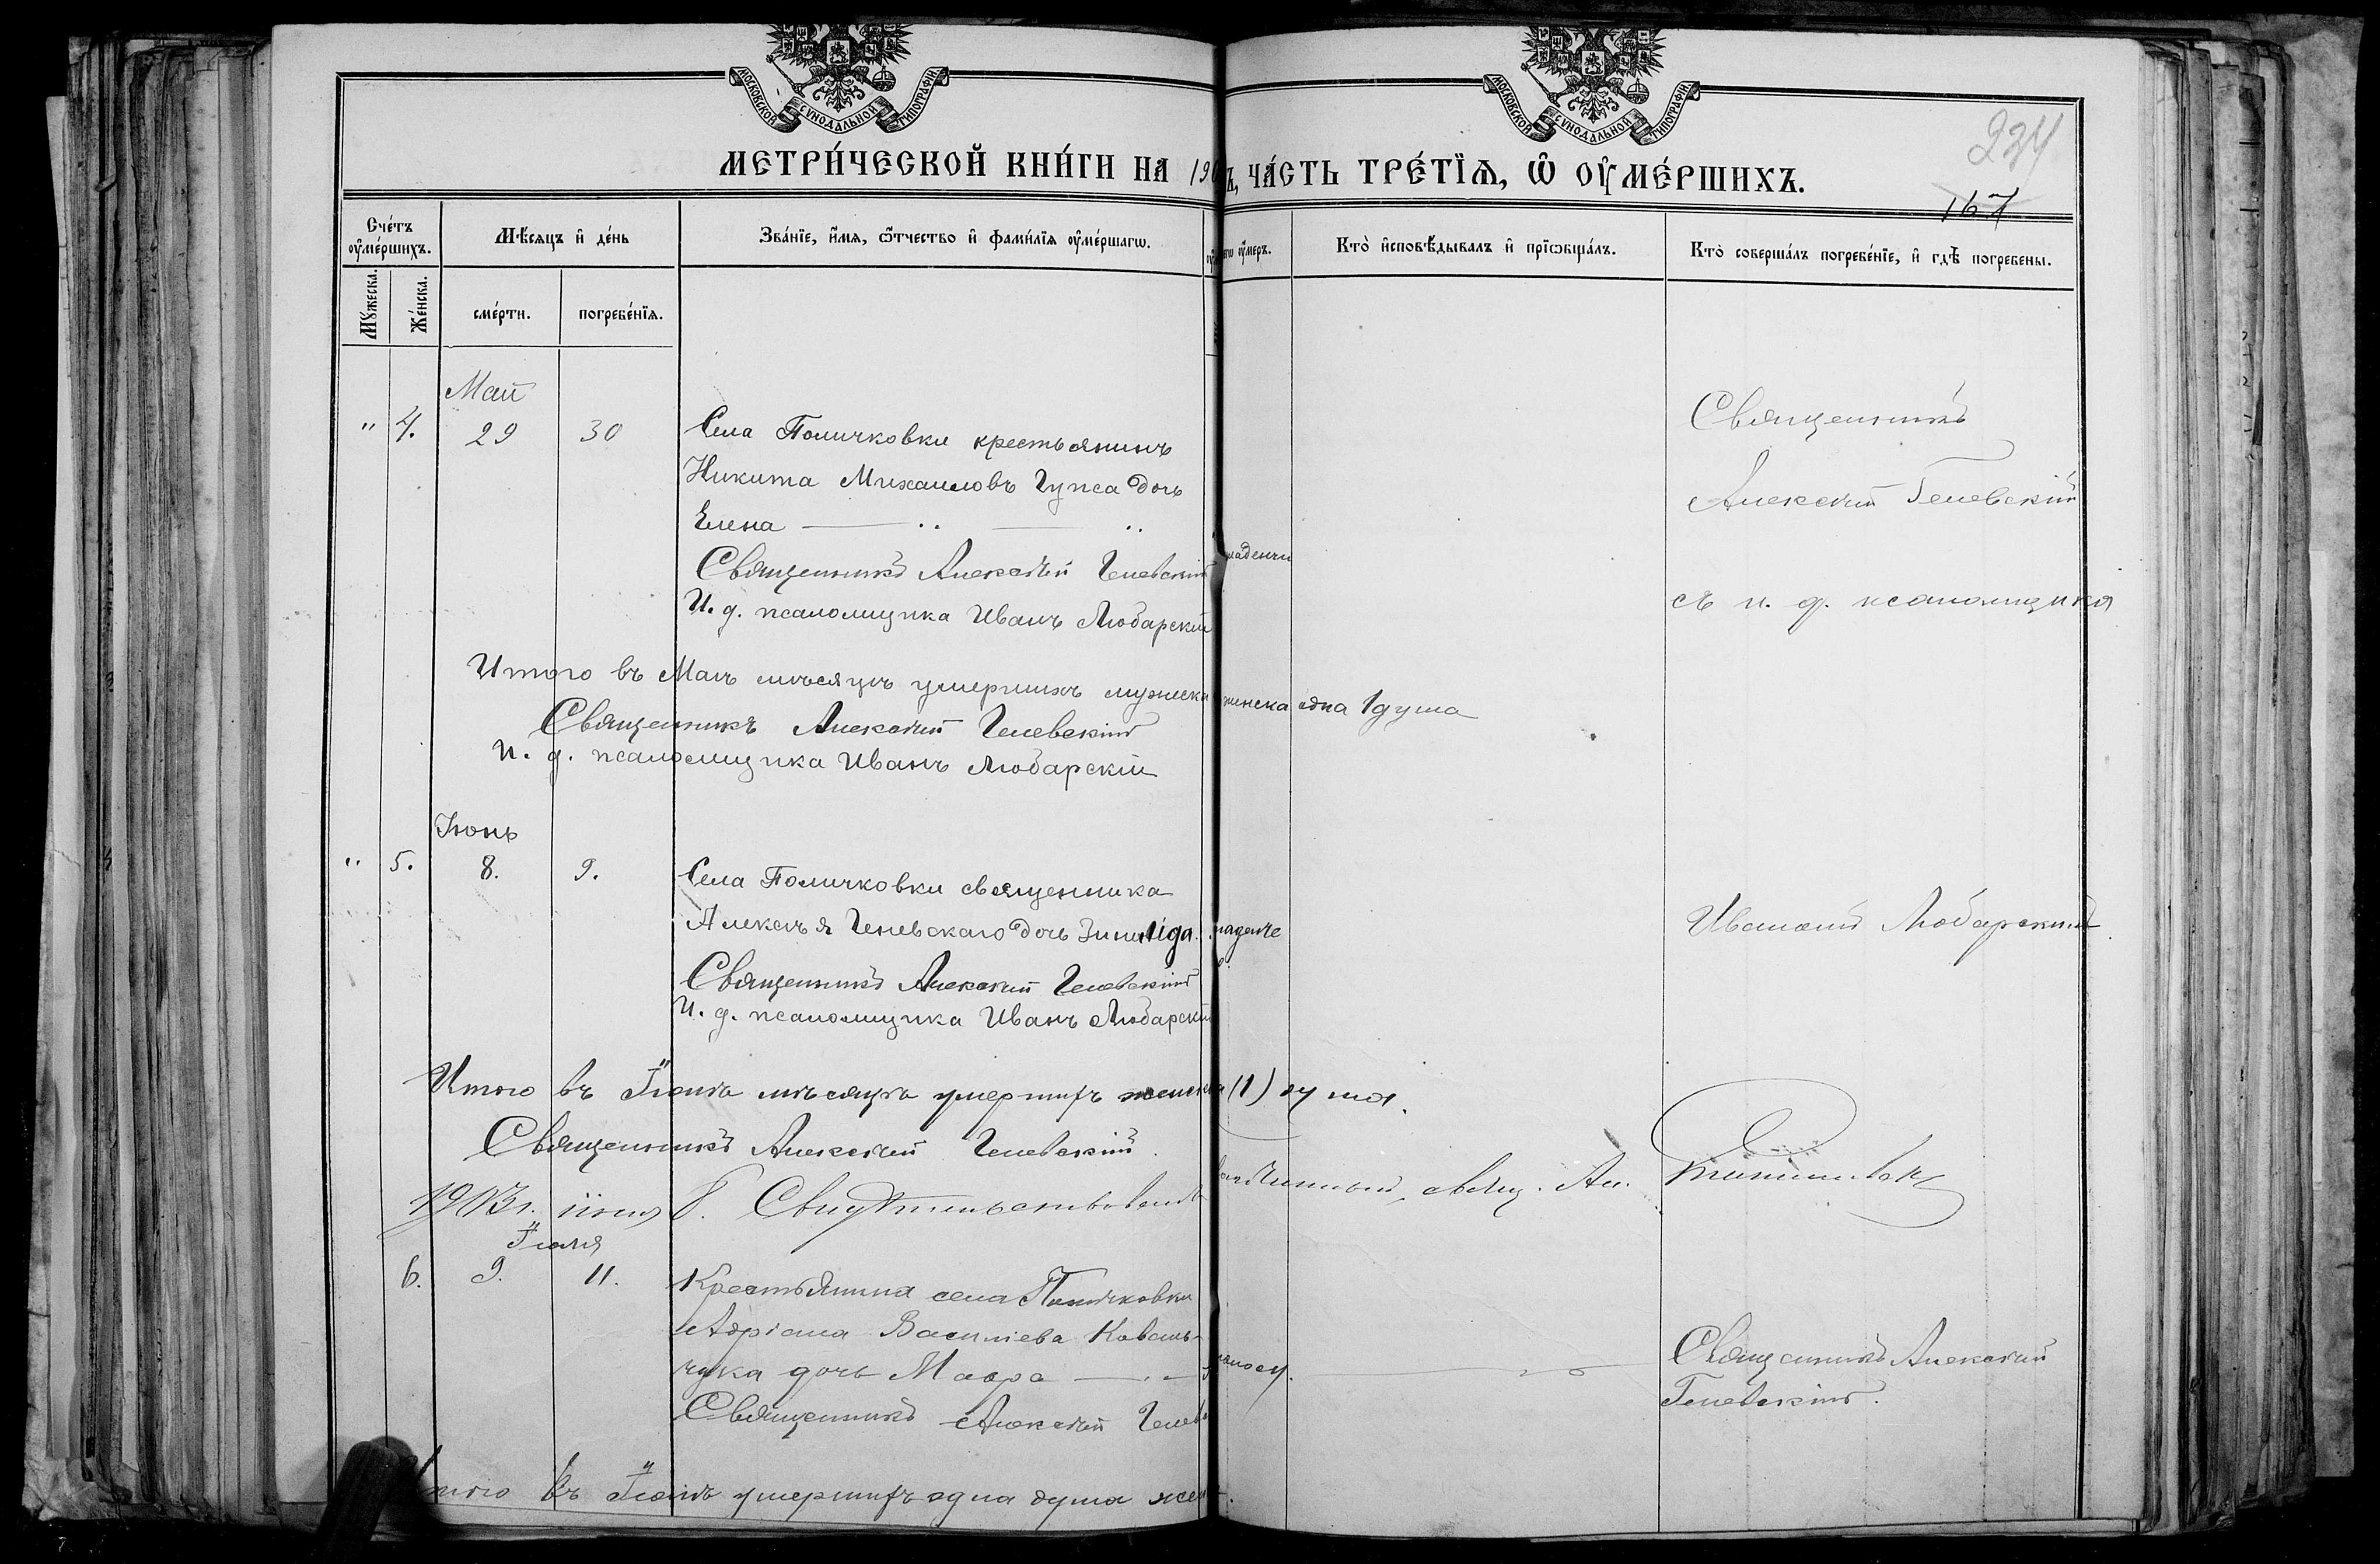 МОСКОВСКОЙ СУНОДАЛЬНОЙ ТИПОГРАФІИ
МОСКОВСКОЙ СУНОДАЛЬНОЙ ТИПОГРАФІИ
234
МЕТРИ́ЧЕСКОЙ КНИ́ГИ НА 190
Ъ, ЧА́СТЬ ТРЕ́ТЇѦ, Ѡ ОУ҆МЕ́РШИХЪ.
167
Сче́тъ оу҆ме́ршихъ.
Мѣ́сяцъ и҆ де́нь
Зва́нїе, и҆́мя, ѻ҆́тчество и҆ фами́лїя оу҆ме́ршагѡ.
оу҆́меръ.
Кто̀ и҆сповѣ́дывалъ и҆ прїѡбща́лъ.
Кто̀ соверша́лъ погребе́нїе, и҆ гдѣ̀ погребены.
Мꙋ́жеска.
Же́нска.
сме́рти.
погребе́нїѧ.
Май
" 4. 29 30
Села Поличковки крестьянинъ
Никита Михаиловъ Гупса дочь
Елена
Священникъ Алексѣй Геневскій
И. д. псаломщика Иванъ Любарскій
младенчи
Священникъ
Алексѣй Геневскій
съ и. д. псаломщика
Итого въ Маѣ мѣсяцѣ умершихъ мужеска
женска одна 1 душа
Священникъ Алексѣй Геневскій
И. д. псаломщика Иванъ Любарскій
Іюнь
" 5. 8. 9.
Села Поличковки священника
Алексѣя Геневскаго дочь Зинаіда
Священникъ Алексѣй Геневскій
И. д. псаломщика Иванъ Любарскій
младенче
Иваномъ Любарскимъ
Итого въ Іюнѣ мѣсяцѣ умершихъ женска (1) душа.
Священникъ Алексѣй Геневскій.
іюня 8. Свидѣтельствовалъ
свящ. Ал.
Іюля
6. 9. 11.
Крестьянина села Поличковки
Адріана Василіева Коваль-
чука дочь Мавра
Священникъ Алексѣй Генев
Священникъ Алексѣй
Геневскій.
Итого въ Іюлѣ умершихъ одна душа жен